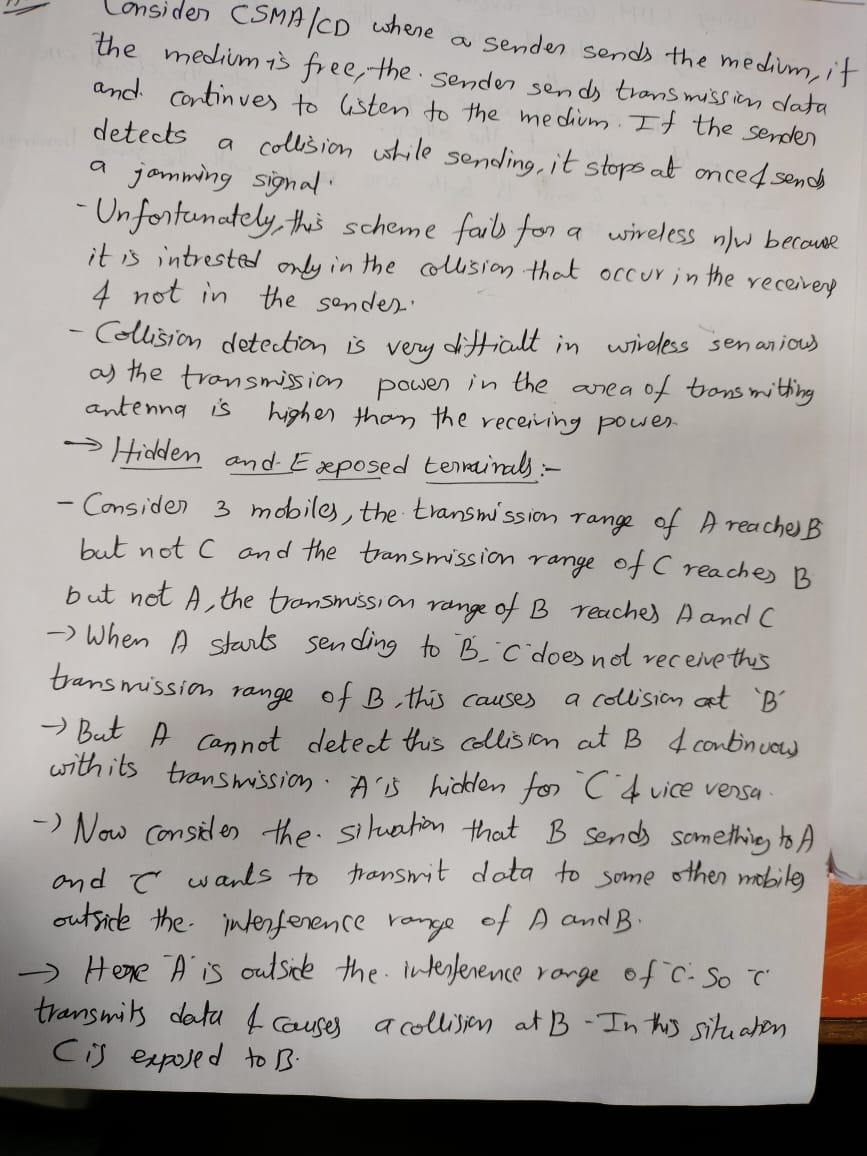 Consider CSMA/CD where a sender sends the medium, if
the medium is free, the sender sends transmission data
and continues to listen to the medium. If the sender
detects a collision while sending, it stops at once & sends
a jamming signal.
- Unfortunately, this scheme fails for a wireless n/w because
it is intrested only in the collision that occur in the receivers
& not in the sender.
- Collision detection is very difficult in wireless senarious
as the transmission power in the area of transmitting
antenna is higher than the receiving power.
→ Hidden and Exposed terminals :-
- Consider 3 mobiles, the transmission range of A reaches B
but not C and the transmission range of C reaches B
but not A, the transmission range of B reaches A and C
→ When A starts sending to 'B', 'C' does not receive this
transmission range of B, this causes a collision at 'B'
→ But A cannot detect this collision at B & continuous
with its transmission. 'A' is hidden for 'C' & vice versa.
→ Now consider the situation that B sends something to A
and C wants to transmit data to some other mobiles
outside the interference range of A and B.
→ Here 'A' is outside the interference range of 'C'. So 'C'
transmits data & causes a collision at B - In this situation
C is exposed to B.